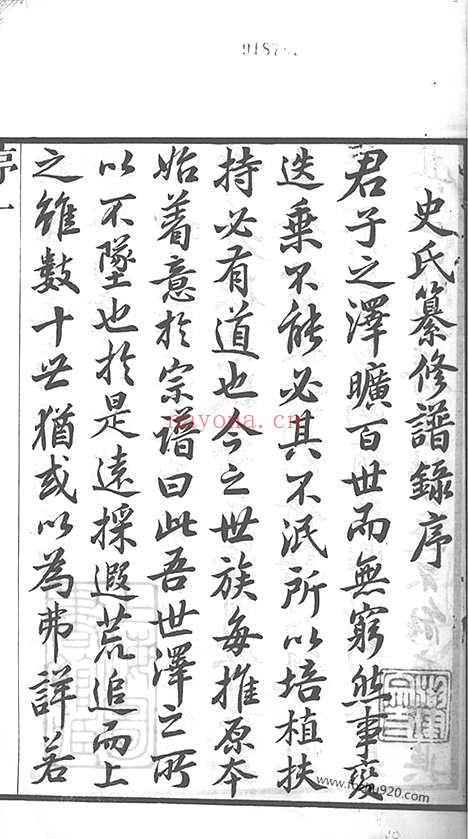 9187
史氏纂修譜錄序
君子之澤曠百世而無窮然事變
迭乗不能必其不泯所以培植扶
持必有道也今之世族每推原本
始着意於宗譜曰此吾世澤之所
以不墜也於是遠採遐荒追而上
之雖數十世猶或以為弗詳若
序一
nayona.cn
www.nayona920.com